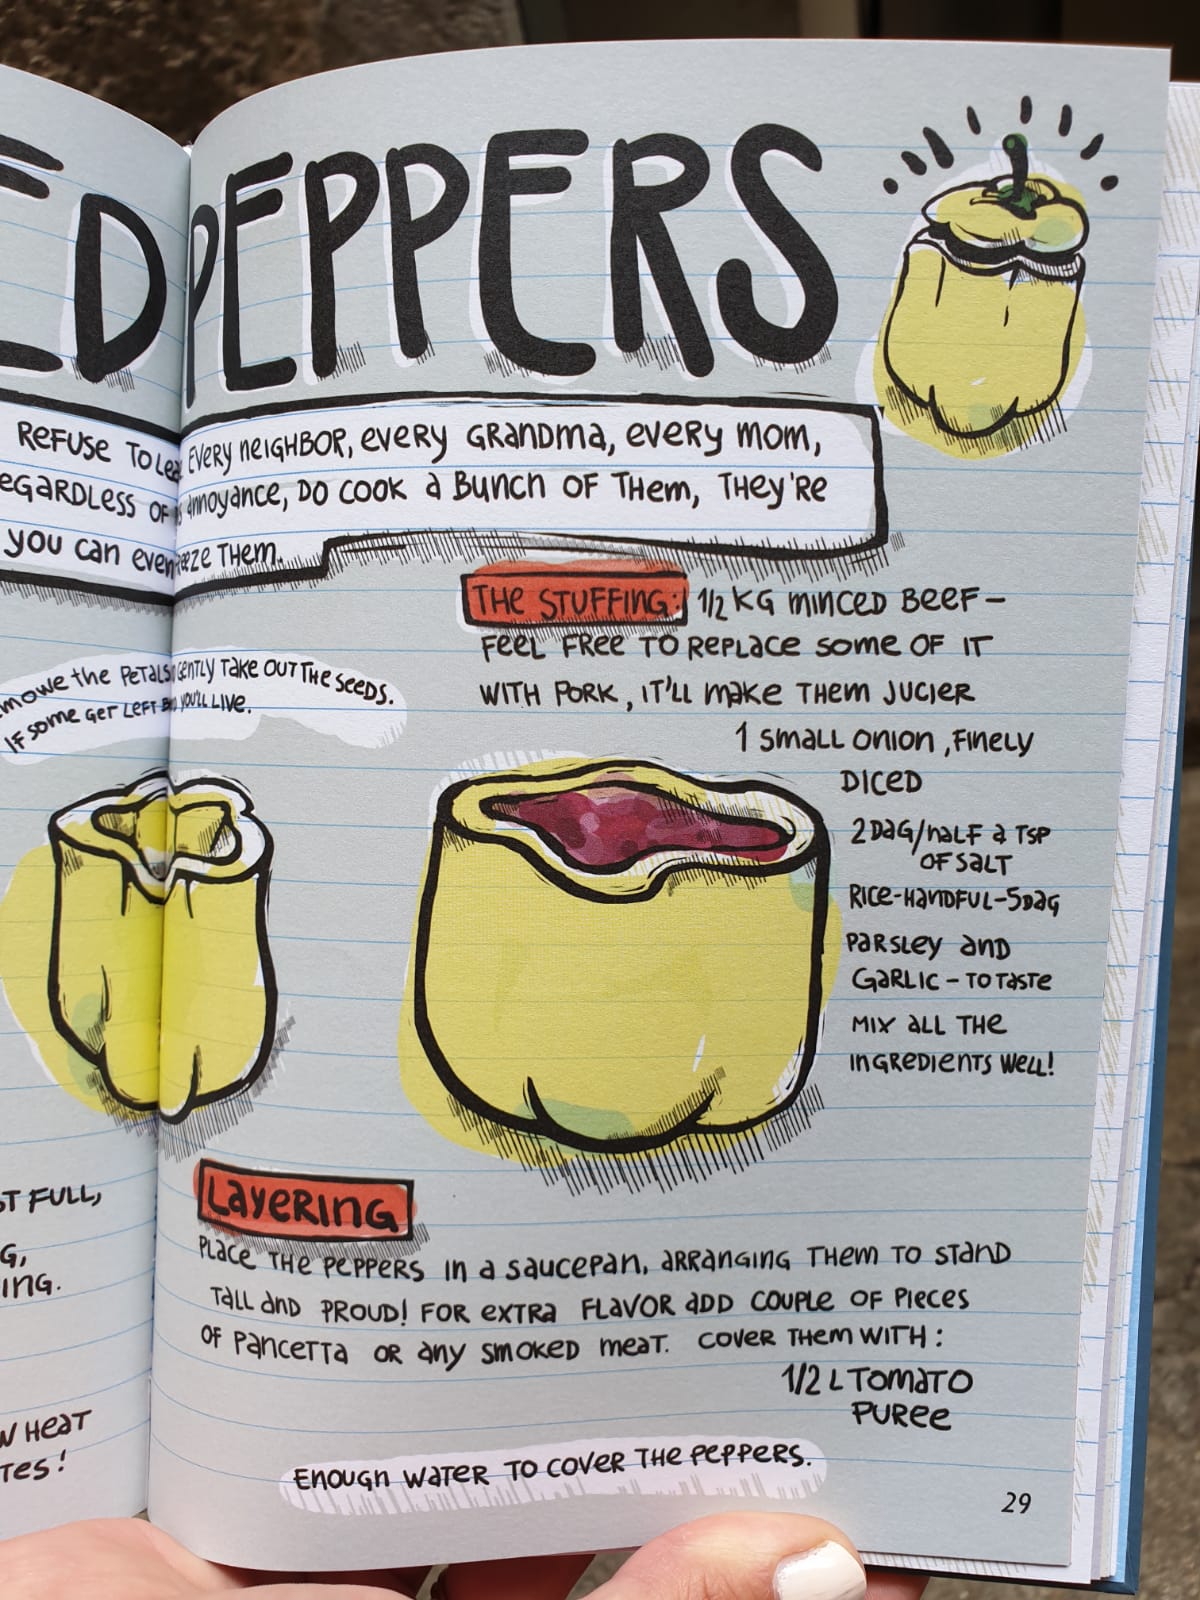 ED PEPPERS
REFUSE TO EVERY NEIGHBOR, EVERY GRANDMA, EVERY MOM,
REGARDLESS OF ANNOYANCE, DO COOK A BUNCH OF THEM, THEY'RE
YOU CAN EVEN THEM.
THE STUFFING: 1/2 KG MINCED BEEF -
FEEL FREE TO REPLACE SOME OF IT
WITH PORK, IT'LL MAKE THEM JUCIER
1 SMALL ONION, FINELY
DICED
2DAG/HALF A TSP
OF SALT
RICE-HANDFUL-5DAG
PARSLEY AND
GARLIC - TO TASTE
MIX ALL THE
INGREDIENTS WELL!
MOWE THE PETALS GENTLY TAKE OUT THE SEEDS.
IF SOME GET LEFT YOU'LL LIVE.
ST FULL,
G,
ING.
W HEAT
TES!
LAYERING
PLACE THE PEPPERS IN A SAUCEPAN, ARRANGING THEM TO STAND
TALL AND PROUD! FOR EXTRA FLAVOR ADD COUPLE OF PIECES
OF PANCETTA OR ANY SMOKED MEAT. COVER THEM WITH:
1/2 L TOMATO
PUREE
ENOUGH WATER TO COVER THE PEPPERS.
29